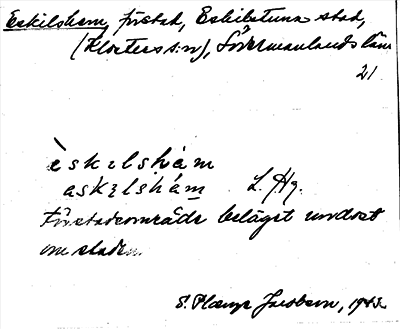 Eskilshem, förstad, Eskilstuna stad,
(Klosters s:n), Södermanlands län
21
èskɩlshám
askɩlshám L. Hg.
Förstadsområde beläget nordost
om staden.
S. Jacobson, 1943.